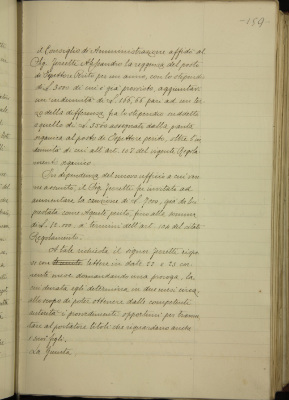 -159-
il Consiglio di Amministrazione affidò al
Sig. Jonetti Alessandro la reggenza del posto
di Ispettore Conto per un anno, con lo stipendio
di £ 3000 di cui è già provvisto, aggiuntavi
un' indennità di £ 166,66 pari ad un ter
zo della differenza fra lo stipendio suddetto e
quello di £ 3500 assegnato dalla pianta
organica al posto di Ispettore, oltre l'in
dennità di cui all' art. 107 del vigente Regola
mento organico.
In dipendenza del nuovo ufficio a cui ven
ne assunto, il Sig. Jonetti fu invitato ad
aumentare la cauzione di £ 9000, già da lui
prestata come Agente, fino alla somma
di £ 12.000, a termini dell' art. del citato
Regolamento.
A tale richiesta il signor Jonetti rispo
se con lettere in date 20 e 23 cor
rente mese domandando una proroga, la
cui durata egli determina in due mesi circa,
allo scopo di poter ottenere dalle competenti
autorità i provvedimenti opportuni per tramu
tare al portatore titoli che riguardano anche
i suoi figli.
La Giunta